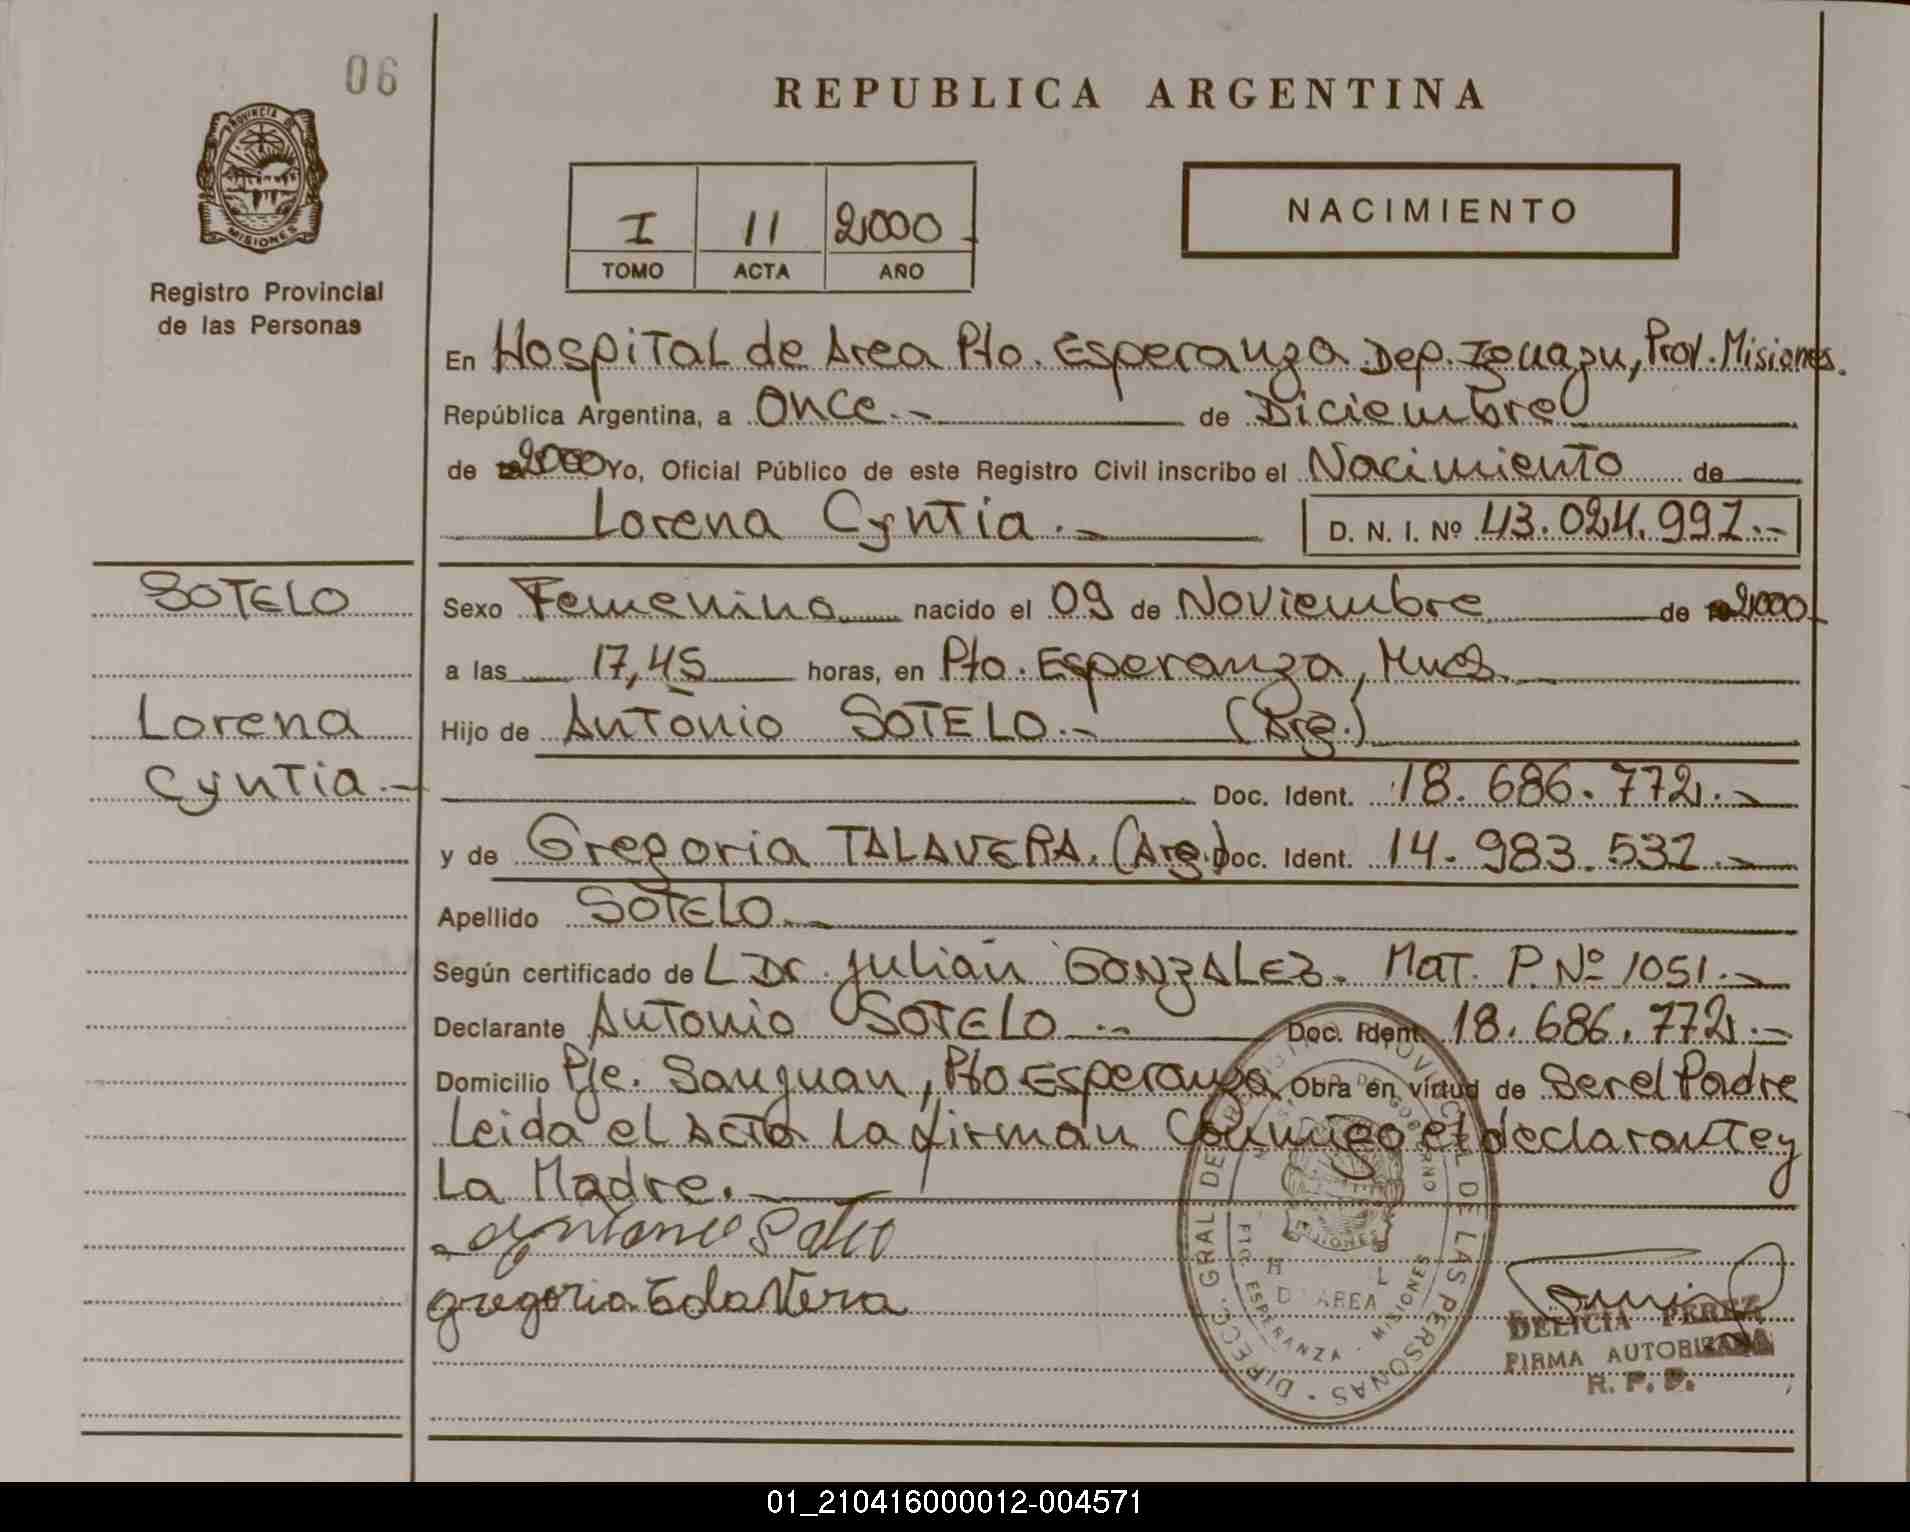 06
REPUBLICA ARGENTINA
PROVINCIA DE
MISIONES
Registro Provincial
de las Personas
I 11 2000
TOMO ACTA AÑO
NACIMIENTO
En Hospital de Area Pto. Esperanza Dep. Iguazu, Prov. Misiones.
República Argentina, a Once.- de Diciembre
de 2000 Yo, Oficial Público de este Registro Civil inscribo el Nacimiento de
Lorena Cyntia.- D. N. I. Nº 43.024.991.-
SOTELO
Lorena
Cyntia.-
Sexo Femenino nacido el 09 de Noviembre de 2000
a las 17,45 horas, en Pto. Esperanza, Mnes.
Hijo de Antonio SOTELO.- (Arg.)
Doc. Ident. 18.686.772.-
y de Gregoria TALAVERA. (Arg.) Doc. Ident. 14.983.531.-
Apellido SOTELO.-
Según certificado de L Dr. Julian GONZALEZ. Mat. P. Nº 1051.-
Declarante Antonio SOTELO.- Doc. Ident. 18.686.772.-
Domicilio Pje. San Juan, Pto Esperanza Obra en virtud de Ser el Padre
Leida el Acta la firman Conmigo el declarante y
La Madre.
Antonio Sotelo
gregoria talavera
DIRECC. GRAL. DE REGISTRO PROVINCIAL DE LAS PERSONAS
MISIONES
H L
D AREA
PTO. ESPERANZA - MISIONES
DELICIA PEREZ
FIRMA AUTORIZADA
R. P. P.
01_210416000012-004571